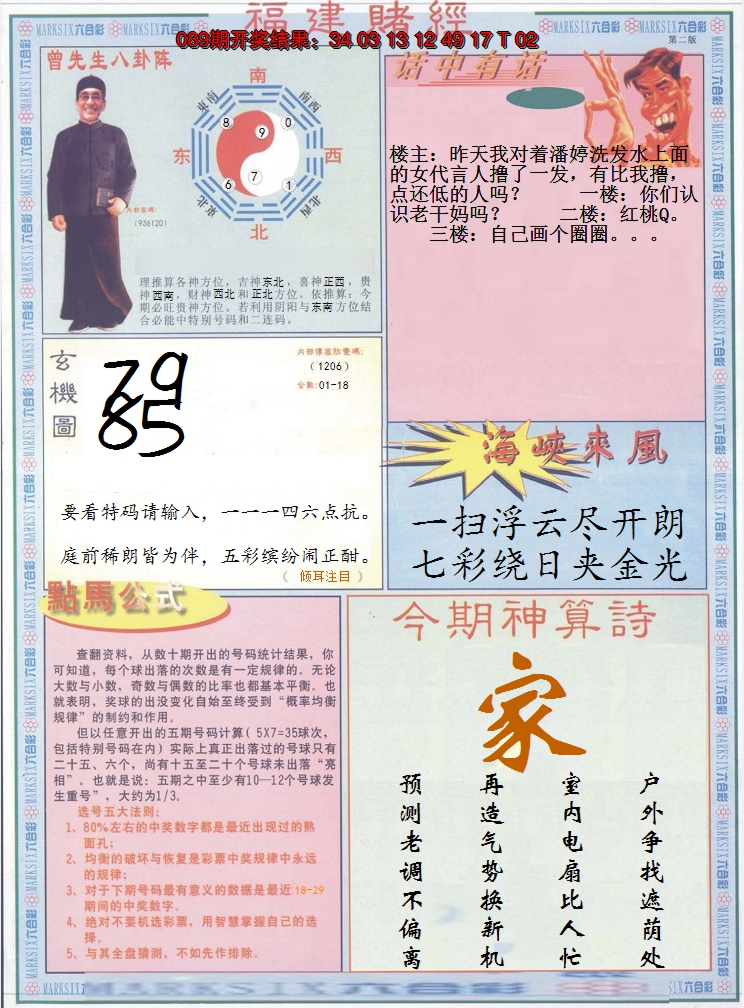 福建賭經
089期开奖结果：34 03 13 12 49 17 T 02
第二版
MARKSIX六合彩
曾先生八卦阵
南
东南
西南
8
9
0
东
西
6
7
1
东北
西北
北
内部密碼:
(936120)
理推算各神方位，吉神东北，喜神正西，贵
神西南，财神西北和正北方位。依推算：今
期必旺贵神方位。若利用阴阳与东南方位结
合必能中特别号码和二连码。
话中有话
楼主：昨天我对着潘婷洗发水上面
的女代言人撸了一发，有比我撸，
点还低的人吗？ 一楼：你们认
识老干妈吗？ 二楼：红桃Q。
三楼：自己画个圈圈。。。
玄機圖
79
85
(1206)
合数:01-18
要看特码请输入，一一一四六点抗。
庭前稀朗皆为伴，五彩缤纷闹正酣。
（ 倾耳注目 ）
海峽來風
一扫浮云尽开朗
七彩绕日夹金光
點馬公式
查翻资料，从数十期开出的号码统计结果，你
可知道，每个球出落的次数是有一定规律的。无论
大数与小数，奇数与偶数的比率也都基本平衡。也
就表明，奖球的出没变化自始至终受到“概率均衡
规律”的制约和作用。
但以任意开出的五期号码计算( 5X7=35球次，
包括特别号码在内) 实际上真正出落过的号球只有
二十五、六个，尚有十五至二十个号球未出落“亮
相”。也就是说：五期之中至少有10—12个号球发
生重号”，大约为1/3。
选号五大法则:
1、80%左右的中奖数字都是最近出现过的熟
面孔;
2、均衡的破坏与恢复是彩票中奖规律中永远
的规律;
3、对于下期号码最有意义的数据是最近18-29
期间的中奖数字。
4、绝对不要机选彩票，用智慧掌握自己的选
择。
5、与其全盘猜测，不如先作排除。
今期神算詩
家
预测老调不偏离
再造气势换新机
室内电扇比人忙
户外争找遮荫处